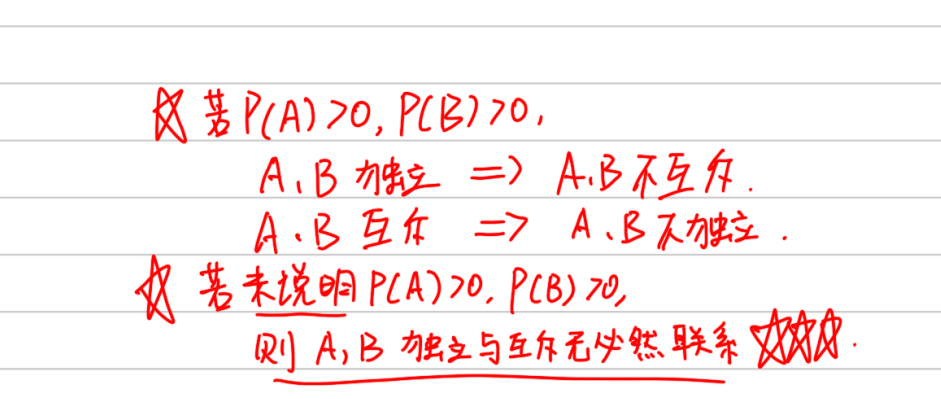 ☆ 若P(A)>0, P(B)>0,
A、B 独立 => A、B不互斥.
A、B 互斥 => A、B不独立.
☆ 若未说明P(A)>0, P(B)>0,
则 A, B 独立与互斥无必然联系 ☆☆☆.